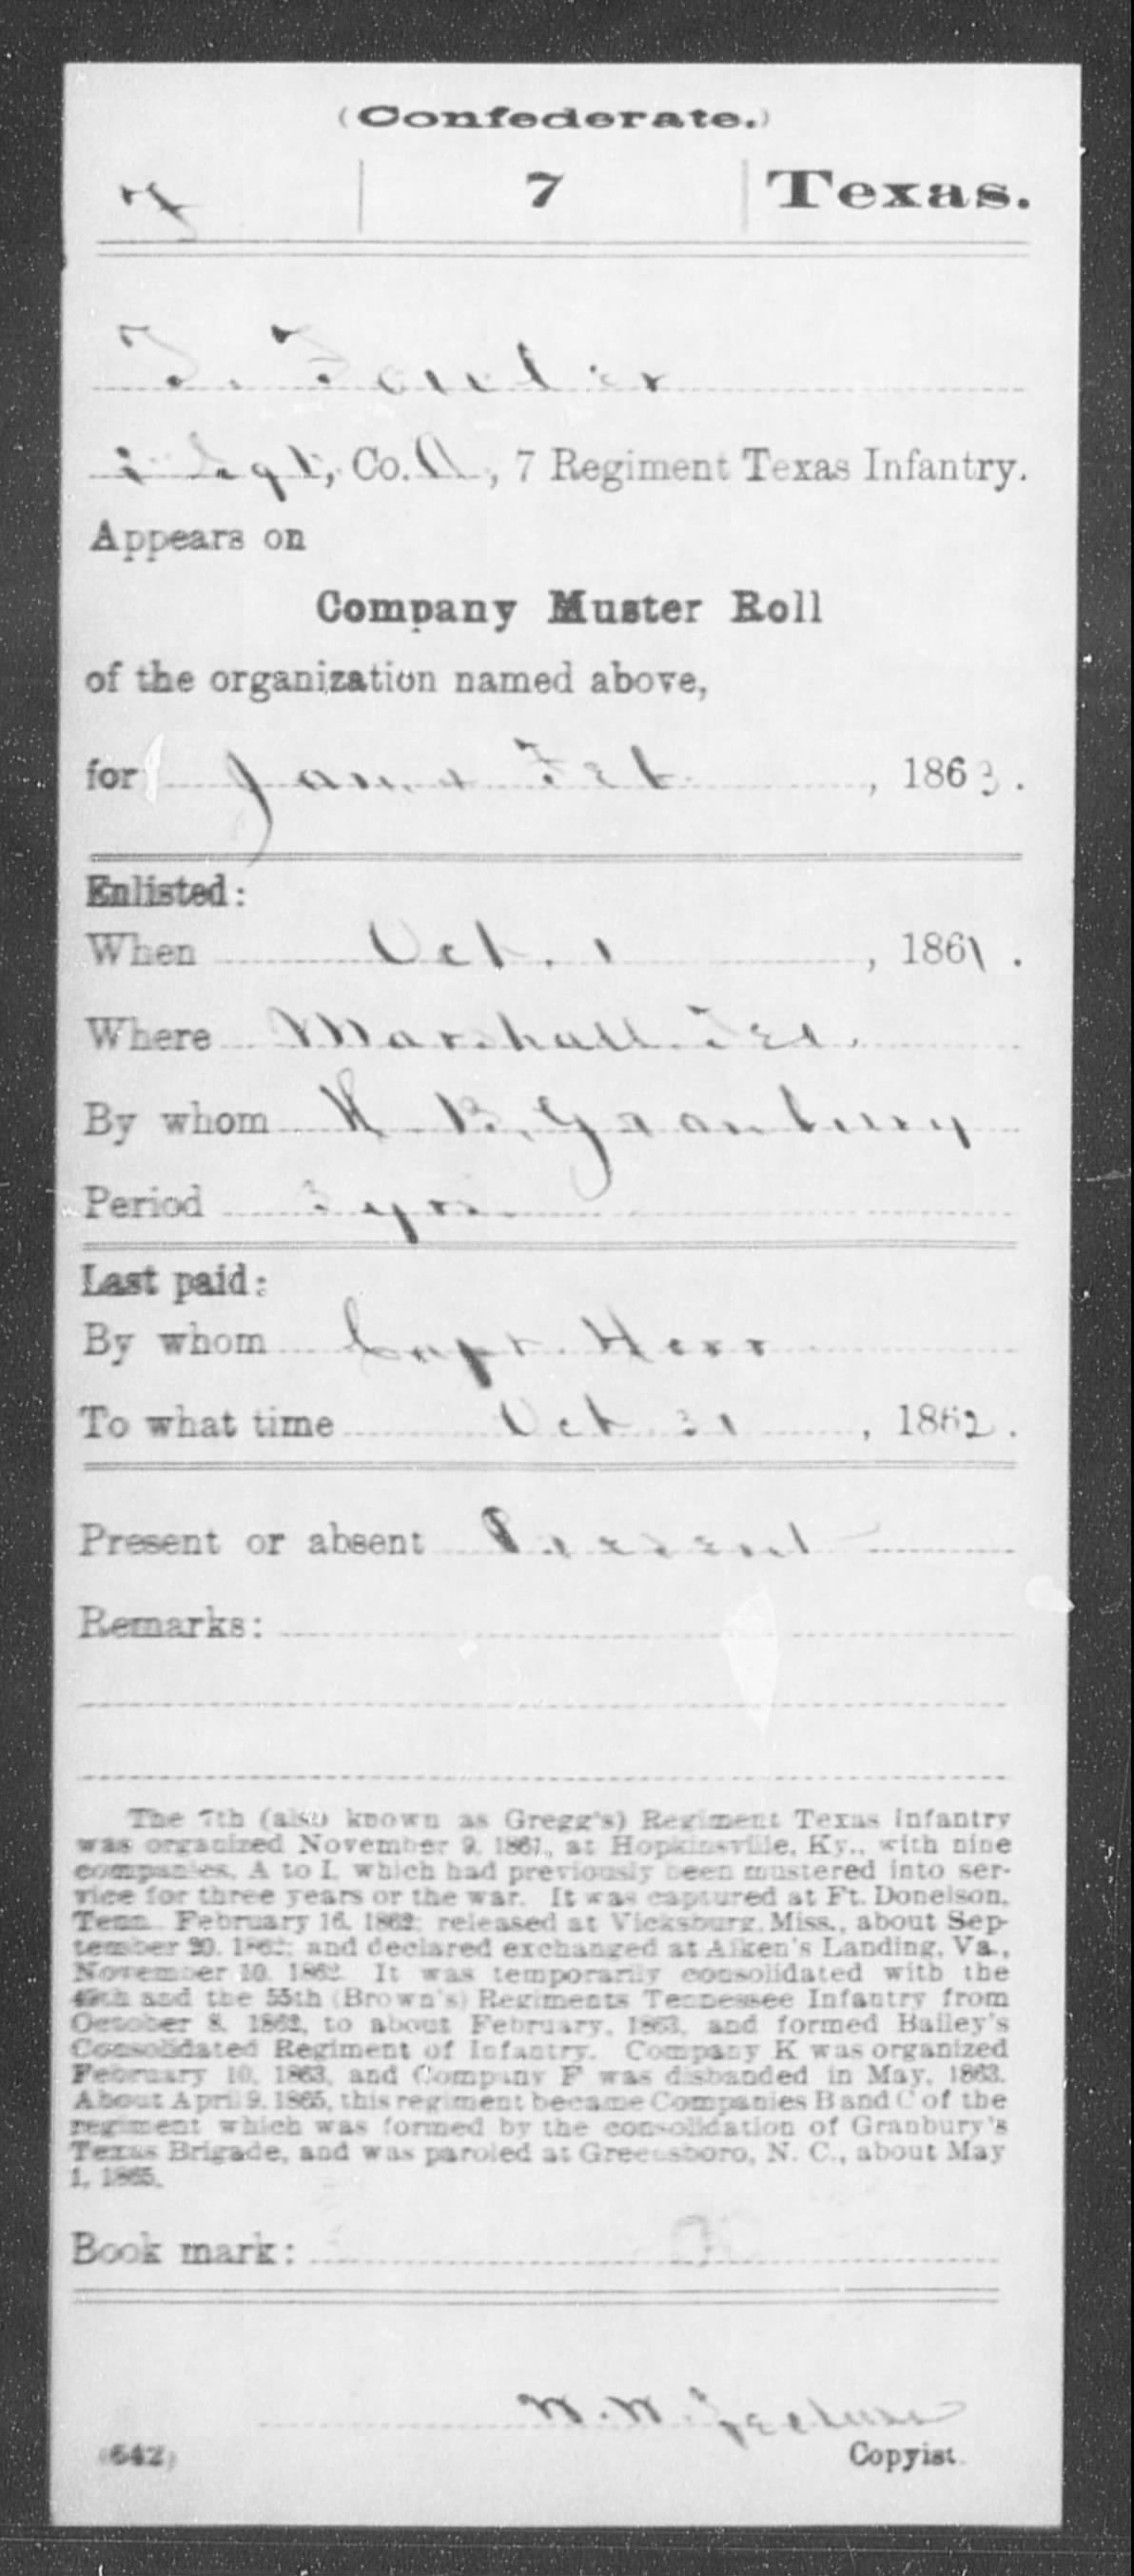 (Confederate.)
F | 7 | Texas.
T. F. Fowler
Sgt, Co. A, 7 Regiment Texas Infantry.
Appears on
Company Muster Roll
of the organization named above,
for Jan. & Feb., 1863.
Enlisted:
When Oct. 1, 1861.
Where Marshall Tex.
By whom H. B. Granbury
Period 3 yrs.
Last paid:
By whom Capt. Herr
To what time Oct. 31, 1862.
Present or absent Present
Remarks:
The 7th (also known as Gregg's) Regiment Texas Infantry
was organized November 9, 1861, at Hopkinsville, Ky., with nine
companies, A to I, which had previously been mustered into ser-
vice for three years or the war. It was captured at Ft. Donelson,
Tenn. February 16, 1862; released at Vicksburg, Miss., about Sep-
tember 20, 1862; and declared exchanged at Aiken's Landing, Va.,
November 10, 1862. It was temporarily consolidated with the
49th and the 55th (Brown's) Regiments Tennessee Infantry from
October 8, 1862, to about February, 1863, and formed Bailey's
Consolidated Regiment of Infantry. Company K was organized
February 10, 1863, and Company F was disbanded in May, 1863.
About April 9, 1865, this regiment became Companies B and C of the
regiment which was formed by the consolidation of Granbury's
Texas Brigade, and was paroled at Greensboro, N. C., about May
1, 1865.
Book mark:
W. W.
(642) Copyist.